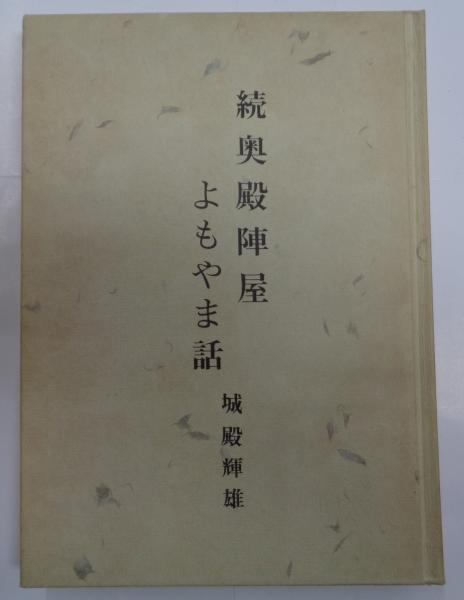 続奥殿陣屋
よもやま話
城殿輝雄